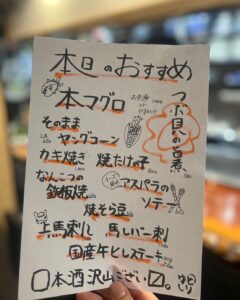 本日のおすすめ
つぶ貝の旨煮
本マグロ
お造り
or
そのまま
ヤングコーン
カキ焼き 焼たけの子
なんこつの
鉄板焼
アスパラの
ソテー
焼そら豆
上馬刺し 馬レバー刺
国産牛ヒレステーキ
日本酒沢山ござい〼。